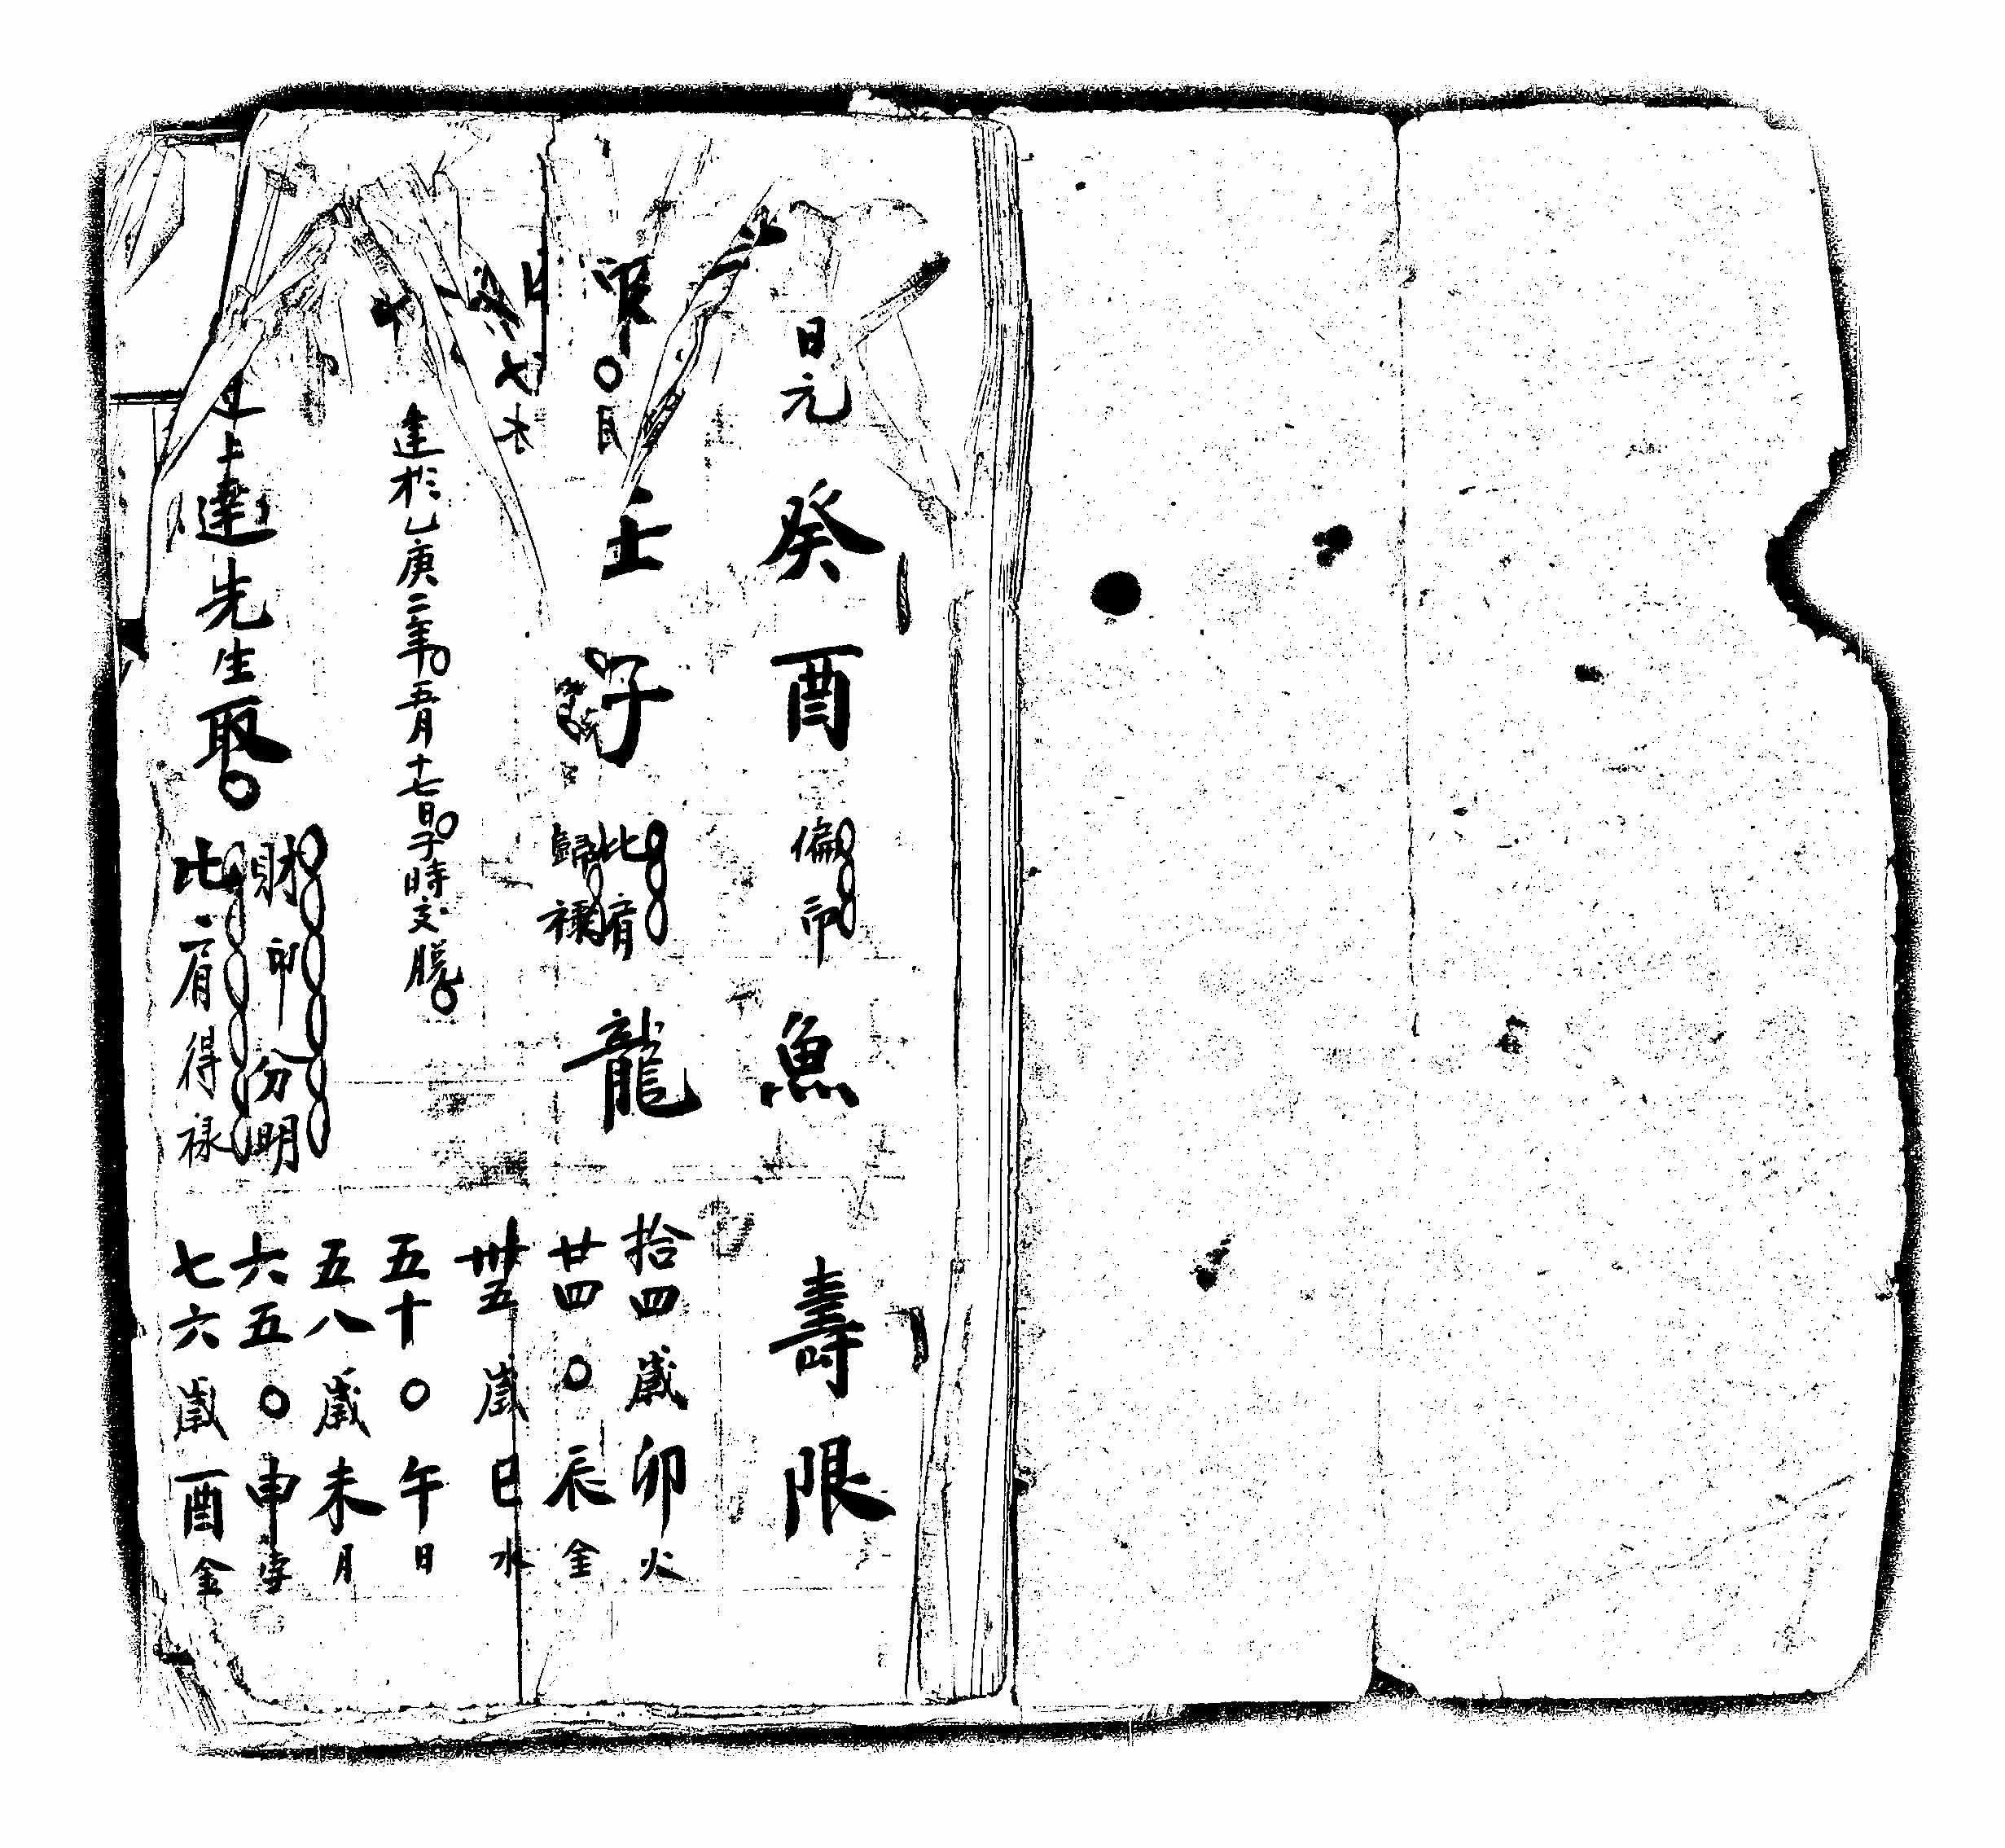 日元 癸酉 偏印 魚 壽限
印 〇 壬子 比肩 歸祿 龍
拾四歲卯火
廿四〇辰金
七水
卅五歲巳水
建於乙庚二年五月十七日子時交脱
五十〇午日
五八歲未月
財印分明
六五〇申孛
上達先生取
比肩得祿
七六歲酉金